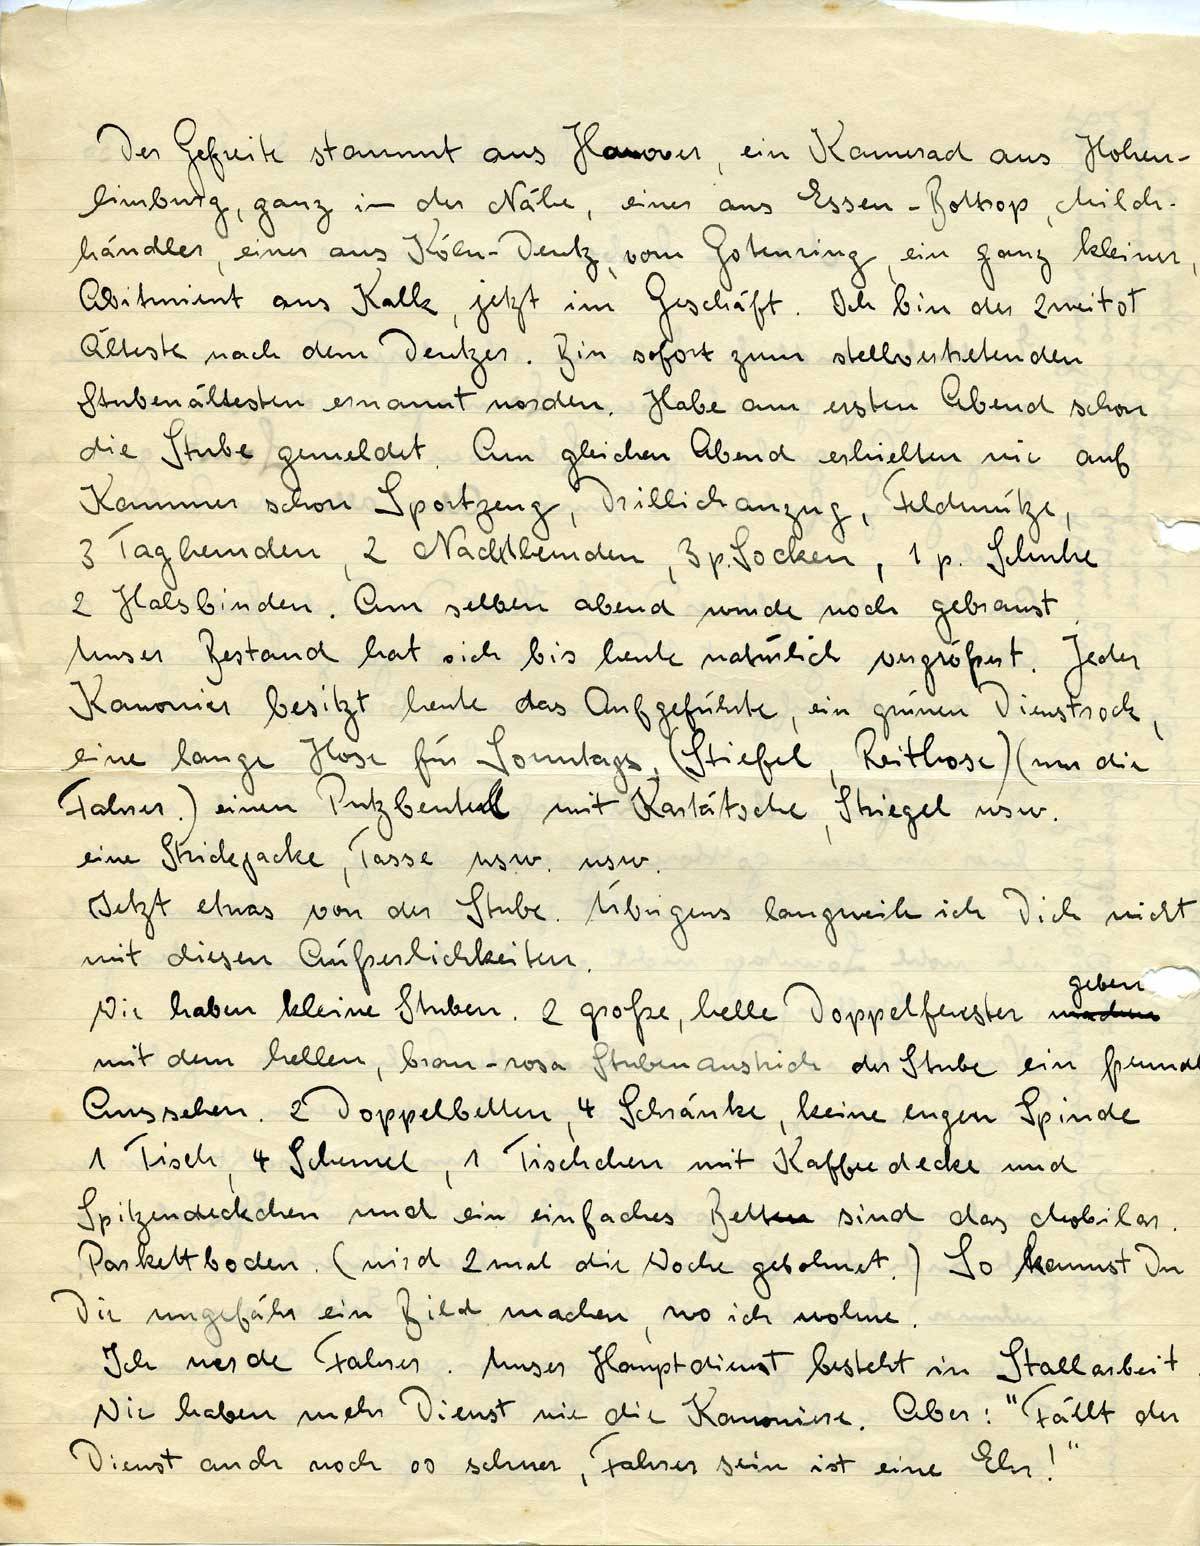 Der Gefreite stammt aus Hanover, ein Kamerad aus Hohen-
limburg, ganz in der Nähe, einer aus Essen-Bottrop, Milch-
händler, einer aus Köln-Deutz, vom Gotenring, ein ganz kleiner,
Abiturient aus Kalk, jetzt im Geschäft. Ich bin der 2weitst
Älteste nach dem Deutzer. Bin sofort zum stellvertretenden
Stubenältesten ernannt worden. Habe am ersten Abend schon
die Stube gemeldet. Am gleichen Abend erhielten wir auf
Kammer schon Sportzeug, Drillichanzug, Feldmütze,
3 Taghemden, 2 Nachthemden, 3 p. Socken, 1 p. Schuhe
2 Halsbinden. Am selben abend wurde noch gebraust.
Unser Bestand hat sich bis heute natürlich vergrößert. Jeder
Kanonier besitzt heute das Aufgeführte, ein grünen Dienstrock,
eine lange Hose für Sonntags, (Stiefel, Reithose) (nur die
Fahrer.) einen Putzbeutel mit Kartätsche, Striegel usw.
eine Strickjacke, Tasse usw. usw.
Jetzt etwas von der Stube. Übrigens langweile ich Dich nicht
mit diesen Äußerlichkeiten.
Wir haben kleine Stuben. 2 große, helle Doppelfenster machen geben
mit dem hellen, braun-rosa Stubenanstrich der Stube ein freundl
Aussehen. 2 Doppelbetten, 4 Schränke, keine engen Spinde
1 Tisch, 4 Schemel, 1 Tischchen mit Kaffeedecke und
Spitzendeckchen und ein einfaches Betten sind das Mobilar.
Parkettboden. (wird 2 mal die Woche gebohnet.) So kannst Du
Dir ungefähr ein Bild machen, wo ich wohne.
Ich werde Fahrer. Unser Hauptdienst besteht in Stallarbeit.
Wir haben mehr Dienst wie die Kanoniere. Aber: "Fällt der
Dienst auch noch so schwer, Fahrer sein ist eine Ehr!"